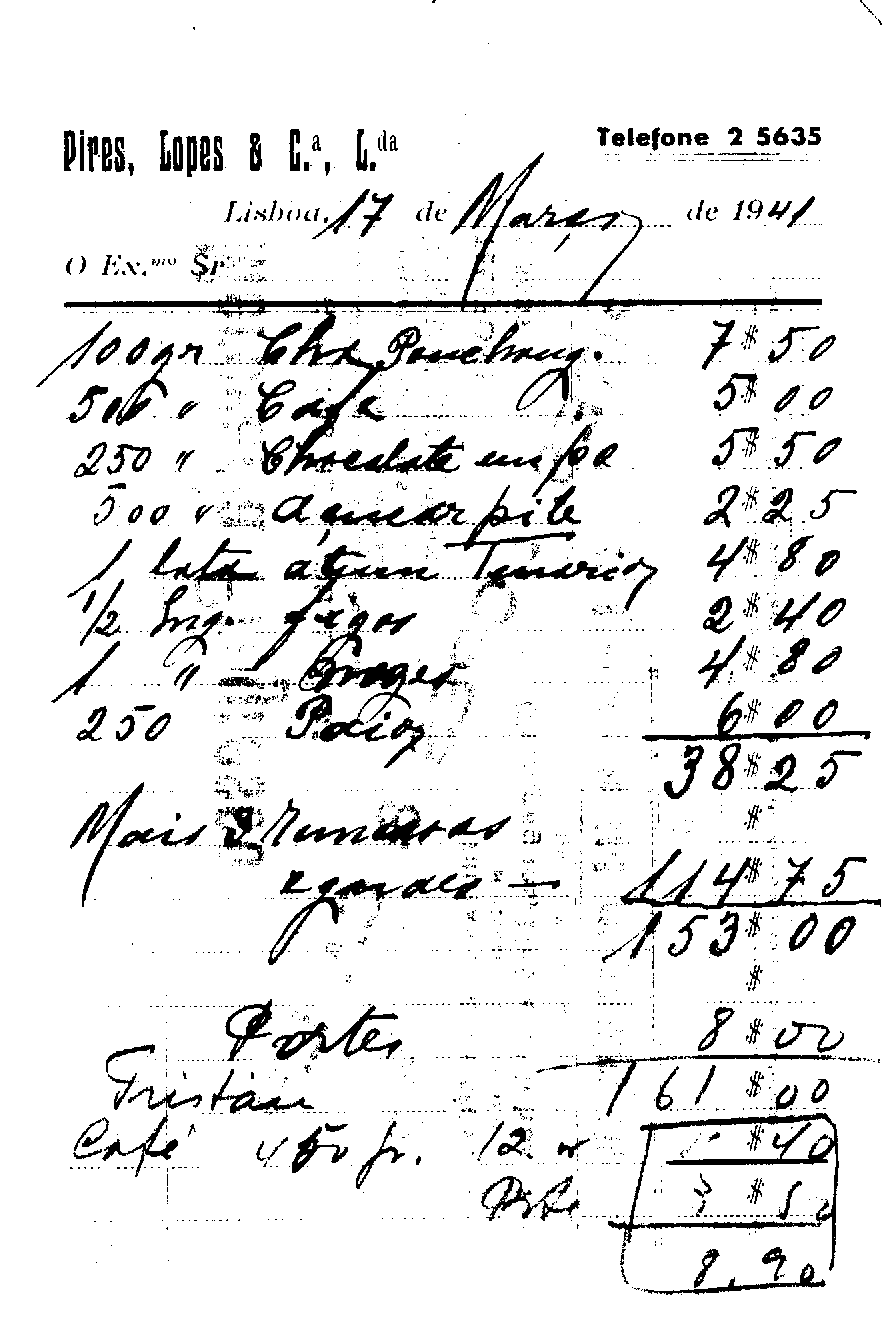 Pires, Lopes & C.ª, L.da
Telefone 2 5635
Lisboa, 17 de Março de 1941
O Ex.mo Sr
100 gr Chá Pouchong. 7$50
500 " Café 5$00
250 " Chocolate em pó 5$50
500 " Açucar pilé 2$25
1 lata átum Tenorio 4$80
1/2 figos 2$40
1 " 4$80
250 Paio 6$00
38$25
$
Mais 3 remessas
eguaes — 114$75
153$00
$
Portes 8$00
Tristão 161$00
Café 450 gr. 12. $40
Porte 3$50
8.90